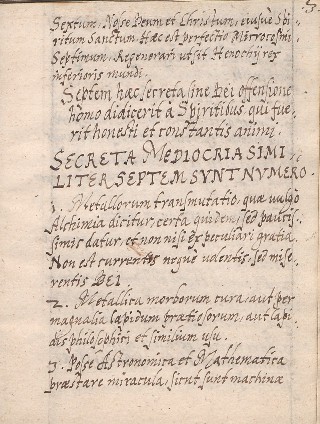 Septum, Nosse Deum et Christum, eiusque Spi-
ritum Sanctum. Hæc est perfectio Microcosmi.
Septimum, Regenerari, ut sit Henochij rex
interioris mundi.
Septem hæc secreta sine Dei offensione
homo didicerit à Spiritibus, qui fue-
rit honesti et constantis animi.
SECRETA MEDIOCRIA SIMI
LITER SEPTEM SVNT NVMERO
1. Metallorum transmutatio, quæ vulgo
Alchimia dicitur, certa quidem, sed paucis-
simis datur, et non nisi ex peculiari gratia.
Non est currentis neque valentis, sed mise-
rentis DEI.
2. Metallica morborum cura, aut per
magnalia lapidum prætiosorum, aut lapi-
dis philosophici et similium usu.
3. Posse Astronomica et Mathematica
præstare miracula, sicut sunt machinæ